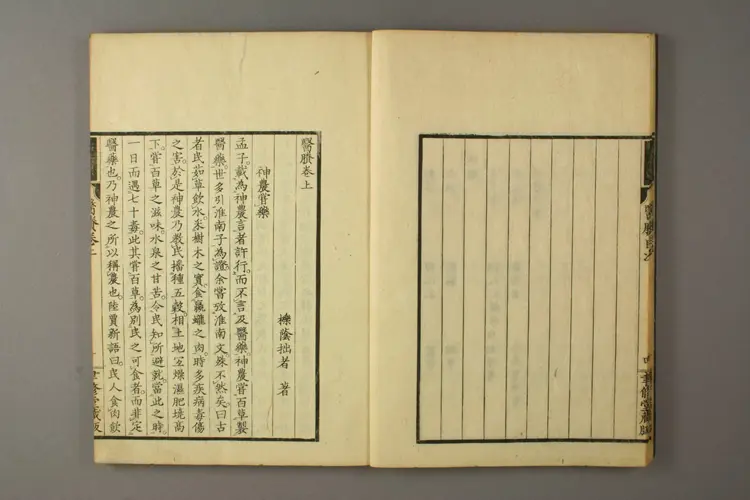 醫賸卷上
櫟蔭拙者 著
神農嘗藥
孟子載為神農言者許行而不言及醫藥神農嘗百草製
醫藥世多引淮南子為證余嘗攷淮南文殊不然矣曰古
者民茹草飲水采樹木之實食蠃蠬之肉時多疾病毒傷
之害於是神農乃教民播種五穀相土地宜燥濕肥墝高
下嘗百草之滋味水泉之甘苦令民知所避就當此之時
一日而遇七十毒此其嘗百草為別民之可食者而非定
醫藥也乃神農之所以稱農也陸賈新語曰民人食肉飲
醫賸卷上
醫賸目次
四